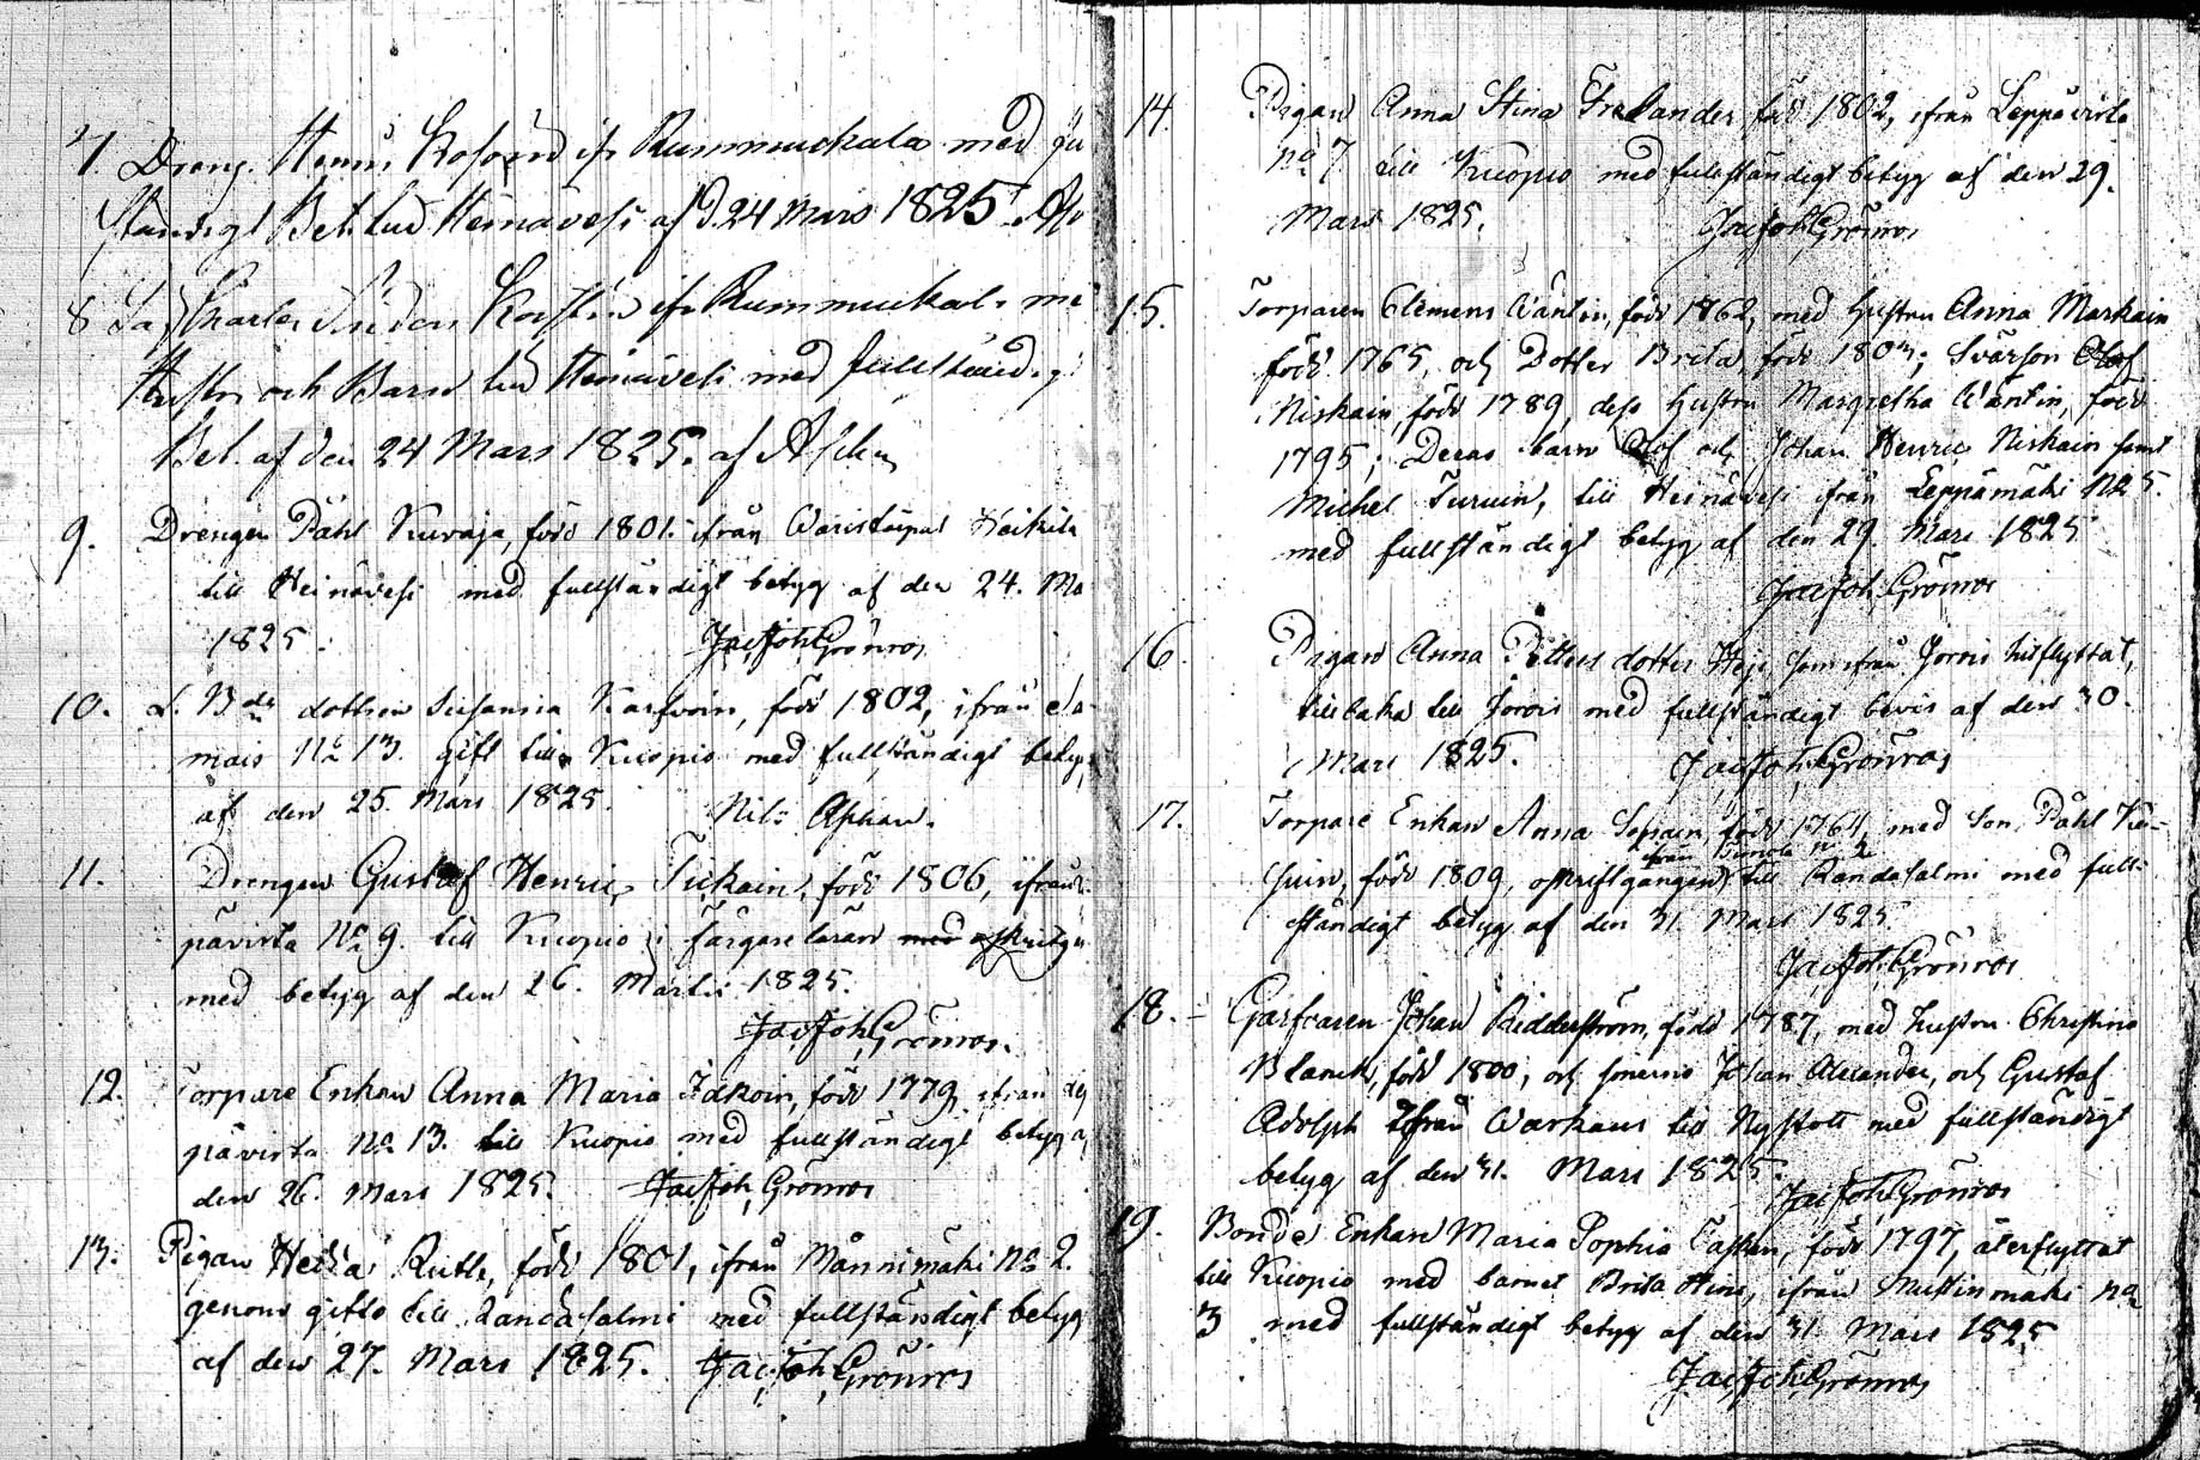 7. Dreng. Henric Kosoin ifr Rummuckala med fu
ständigt Bet. till Heinävesi af d. 24 Mars 1825.
8 Anders ifr Rummuckala me
Hustru och Barn till Heinävesi med fullständigt
Bet. af den 24 Mars 1825. af
9. Drengen Påhl Kuvaja, född 1801. ifrån
till Heinävesi med fullständigt betyg af den 24. Ma
1825. Jac Joh Grönros
10. L. Bde dottren Susanna Karfvoin, född 1802, ifrån
mäis No 13. gift till Kuopio med fullständigt betyg
af den 25. Mars 1825. Nils Aschan.
11. Drengen Gustaf Henric Tickain, född 1806, ifrån
pävirta No 9. till Kuopio i färgare läran med
med betyg af den 26. Martii 1825.
Jac Joh Grönros.
12. Torpare Enkan Anna Maria född 1779, ifrån
pävirta No 13. till Kuopio med fullständigt betyg a
den 26. Mars 1825. Jac Joh Grönros
13. Pigan Hedda Ruuth, född 1801, ifrån Männimäki No 2.
genom gifte till Randasalmi med fullständigt betyg
af den 27. Mars 1825. Jac Joh Grönros
14. Pigan Anna Stina Frelander född 1802, ifrån Leppävirta
No 7. till Kuopio med fullständigt betyg af den 29.
Mars 1825. Jac Joh Grönros
15. Torparen Clemens Väntin, född 1762, med Hustru Anna Markain
född 1765, och Dotter Brita, född 1803; Svärson Olof
Niskain, född 1789, dess Hustru Margretha Väntin, född
1795; Deras barn Olof och Johan Henric Niskain samt
Michel Turuin, till Heinävesi ifrån Leppämäki No 5.
med fullständigt betyg af den 29. Mars 1825
Jac Joh Grönros
16. Pigan Anna Petters dotter som ifrån Jorois hitflyttat,
tillbaka till Jorois med fullständigt bevis af den 30.
Mars 1825. Jac Joh Grönros
17. Torpare Enkan Anna född 1764, med Son Påhl
ifrån Timola No 2
född 1809, till Randasalmi med full-
ständigt betyg af den 31. Mars 1825.
Jac Joh Grönros
18. Garfvaren Johan Ridderström, född 1787, med hustru Christina
Blanck, född 1800, och sönerna Johan Alexander, och Gustaf
Adolph ifrån Warkaus till Nyslott med fullständigt
betyg af den 31. Mars 1825
Jac Joh Grönros
19. Bonde Enkan Maria Sophia född 1797, återflyttat
till Kuopio med barnet Brita Stina, ifrån Mustinmäki No
3 med fullständigt betyg af den 31. Mars 1825
Jac Joh Grönros